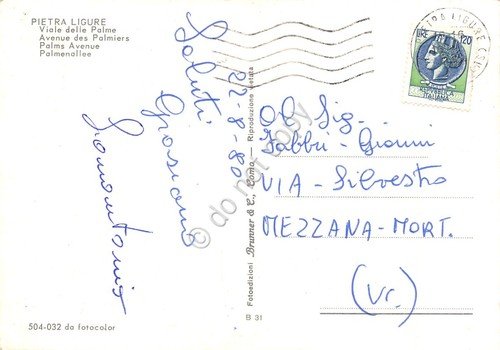 PIETRA LIGURE
Viale delle Palme
Avenue des Palmiers
Palms Avenue
Palmenallee
Saluti
22-8-80
Graziano
LIRE 120
PIETRA LIGURE
Al Sig.
Fabbri - Gianni
VIA - Silvestro
MEZZANA - MORT.
(Vr.)
Fotoedizioni Brunner & C., Como - Riproduzione vietata
B 31
504-032 da fotocolor
© do not copy